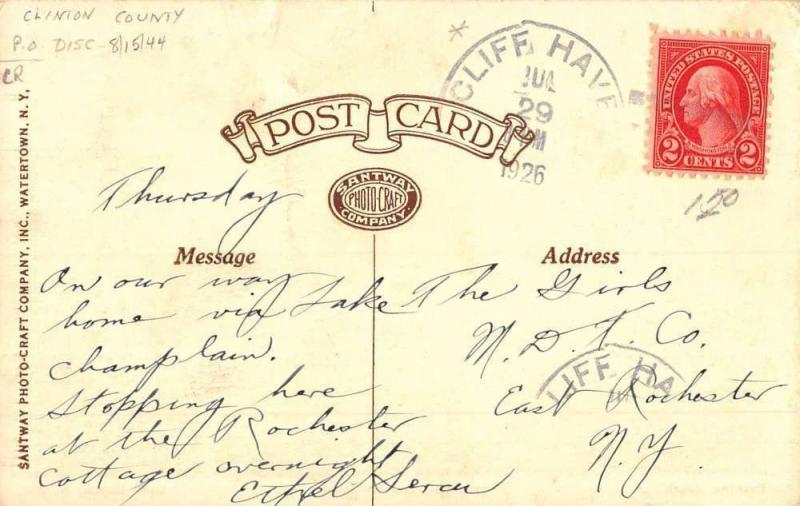 CLINTON COUNTY
P.O. DISC 8/15/44
CR
CLIFF HAVE
JUL
29
M
1926
UNITED STATES POSTAGE
2 CENTS 2
1.50
POST CARD
SANTWAY
PHOTO-CRAFT
COMPANY
SANTWAY PHOTO-CRAFT COMPANY, INC., WATERTOWN, N. Y.
Thursday
Message
On our way
home via Lake
Champlain.
Stopping here
at the Rochester
Cottage overnight
Ethel
Address
The Girls
M. D. T. Co.
LIFF HA
East Rochester
N. Y.